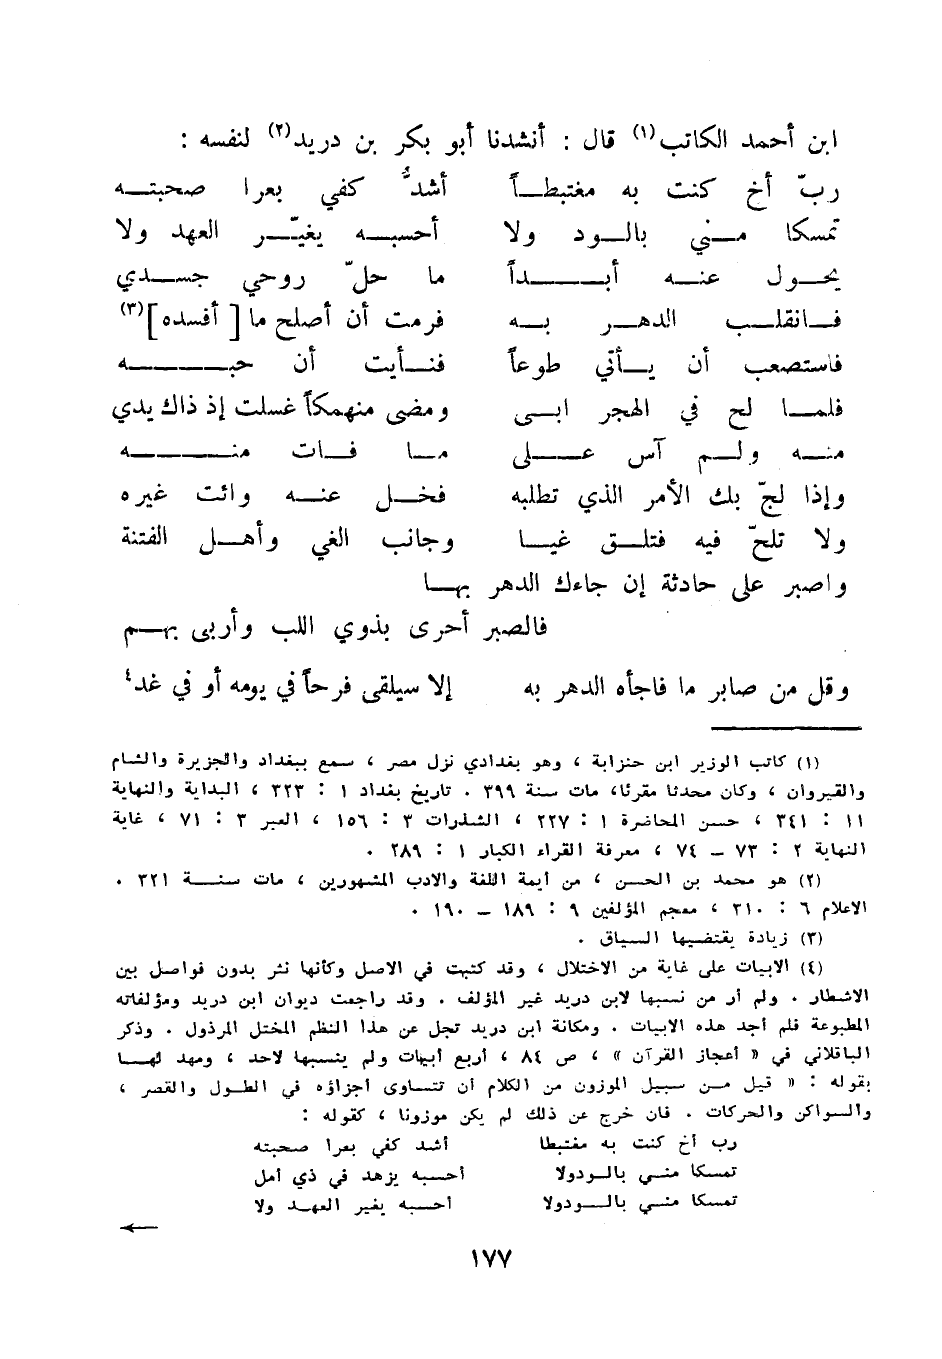 ابن أحمد الكاتب(١) قال : أنشدنا أبو بكر بن دريد(٢) لنفسه :
ربّ أخ كنت به مغتبطاً أشدُّ كفي بعرا صحبته
تمسكا مني بالود ولا أحسبه يغيّر العهد ولا
يحول عنه أبداً ما حلّ روحي جسدي
فانقلب الدهر به فرمت أن أصلح ما [ أفسده ](٣)
فاستصعب أن يأتي طوعاً فتأيت أن حبه
فلما لح في الهجر ابى ومضى منهمكاً غسلت إذ ذاك يدي
منه ولم آس على ما فات منه
وإذا لجّ بك الأمر الذي تطلبه فخل عنه وائت غيره
ولا تلجّ فيه فتلق غيا وجانب الغي وأهل الفتنة
واصبر على حادثة إن جاءك الدهر بها
فالصبر أحرى بذوي اللب وأربى بهم
وقل من صابر ما فاجأه الدهر به إلا سيلقى فرحاً في يومه أو في غد٤
(١) كاتب الوزير ابن حنزابة ، وهو بغدادي نزل مصر ، سمع ببغداد والجزيرة والشام
والقيروان ، وكان محدثا مقرئا، مات سنة ٣٩٩ . تاريخ بغداد ١ : ٣٢٣ ، البداية والنهاية
١١ : ٣٤١ ، حسن المحاضرة ١ : ٢٢٧ ، الشذرات ٣ : ١٥٦ ، العبر ٣ : ٧١ ، غاية
النهاية ٢ : ٧٣ – ٧٤ ، معرفة القراء الكبار ١ : ٢٨٩ .
(٢) هو محمد بن الحسن ، من أيمة اللغة والادب المشهورين ، مات سنة ٣٢١ .
الاعلام ٦ : ٣١٠ ، معجم المؤلفين ٩ : ١٨٩ – ١٩٠ .
(٣) زيادة يقتضيها السياق .
(٤) الابيات على غاية من الاختلال ، وقد كتبت في الاصل وكأنها نثر بدون فواصل بين
الاشطار . ولم أر من نسبها لابن دريد غير المؤلف . وقد راجعت ديوان ابن دريد ومؤلفاته
المطبوعة فلم أجد هذه الابيات . ومكانة ابن دريد تجل عن هذا النظم المختل المرذول . وذكر
الباقلاني في « أعجاز القرآن » ، ص ٨٤ ، أربع أبيات ولم ينسبها لاحد ، ومهد لها
بقوله : « قيل من سبيل الموزون من الكلام أن تتساوى أجزاؤه في الطول والقصر ،
والسواكن والحركات . فان خرج عن ذلك لم يكن موزونا ، كقوله :
رب أخ كنت به مغتبطا أشد كفي بعرا صحبته
تمسكا مني بالودولا أحسبه يزهد في ذي أمل
تمسكا مني بالودولا أحسبه يغير العهد ولا
١٧٧